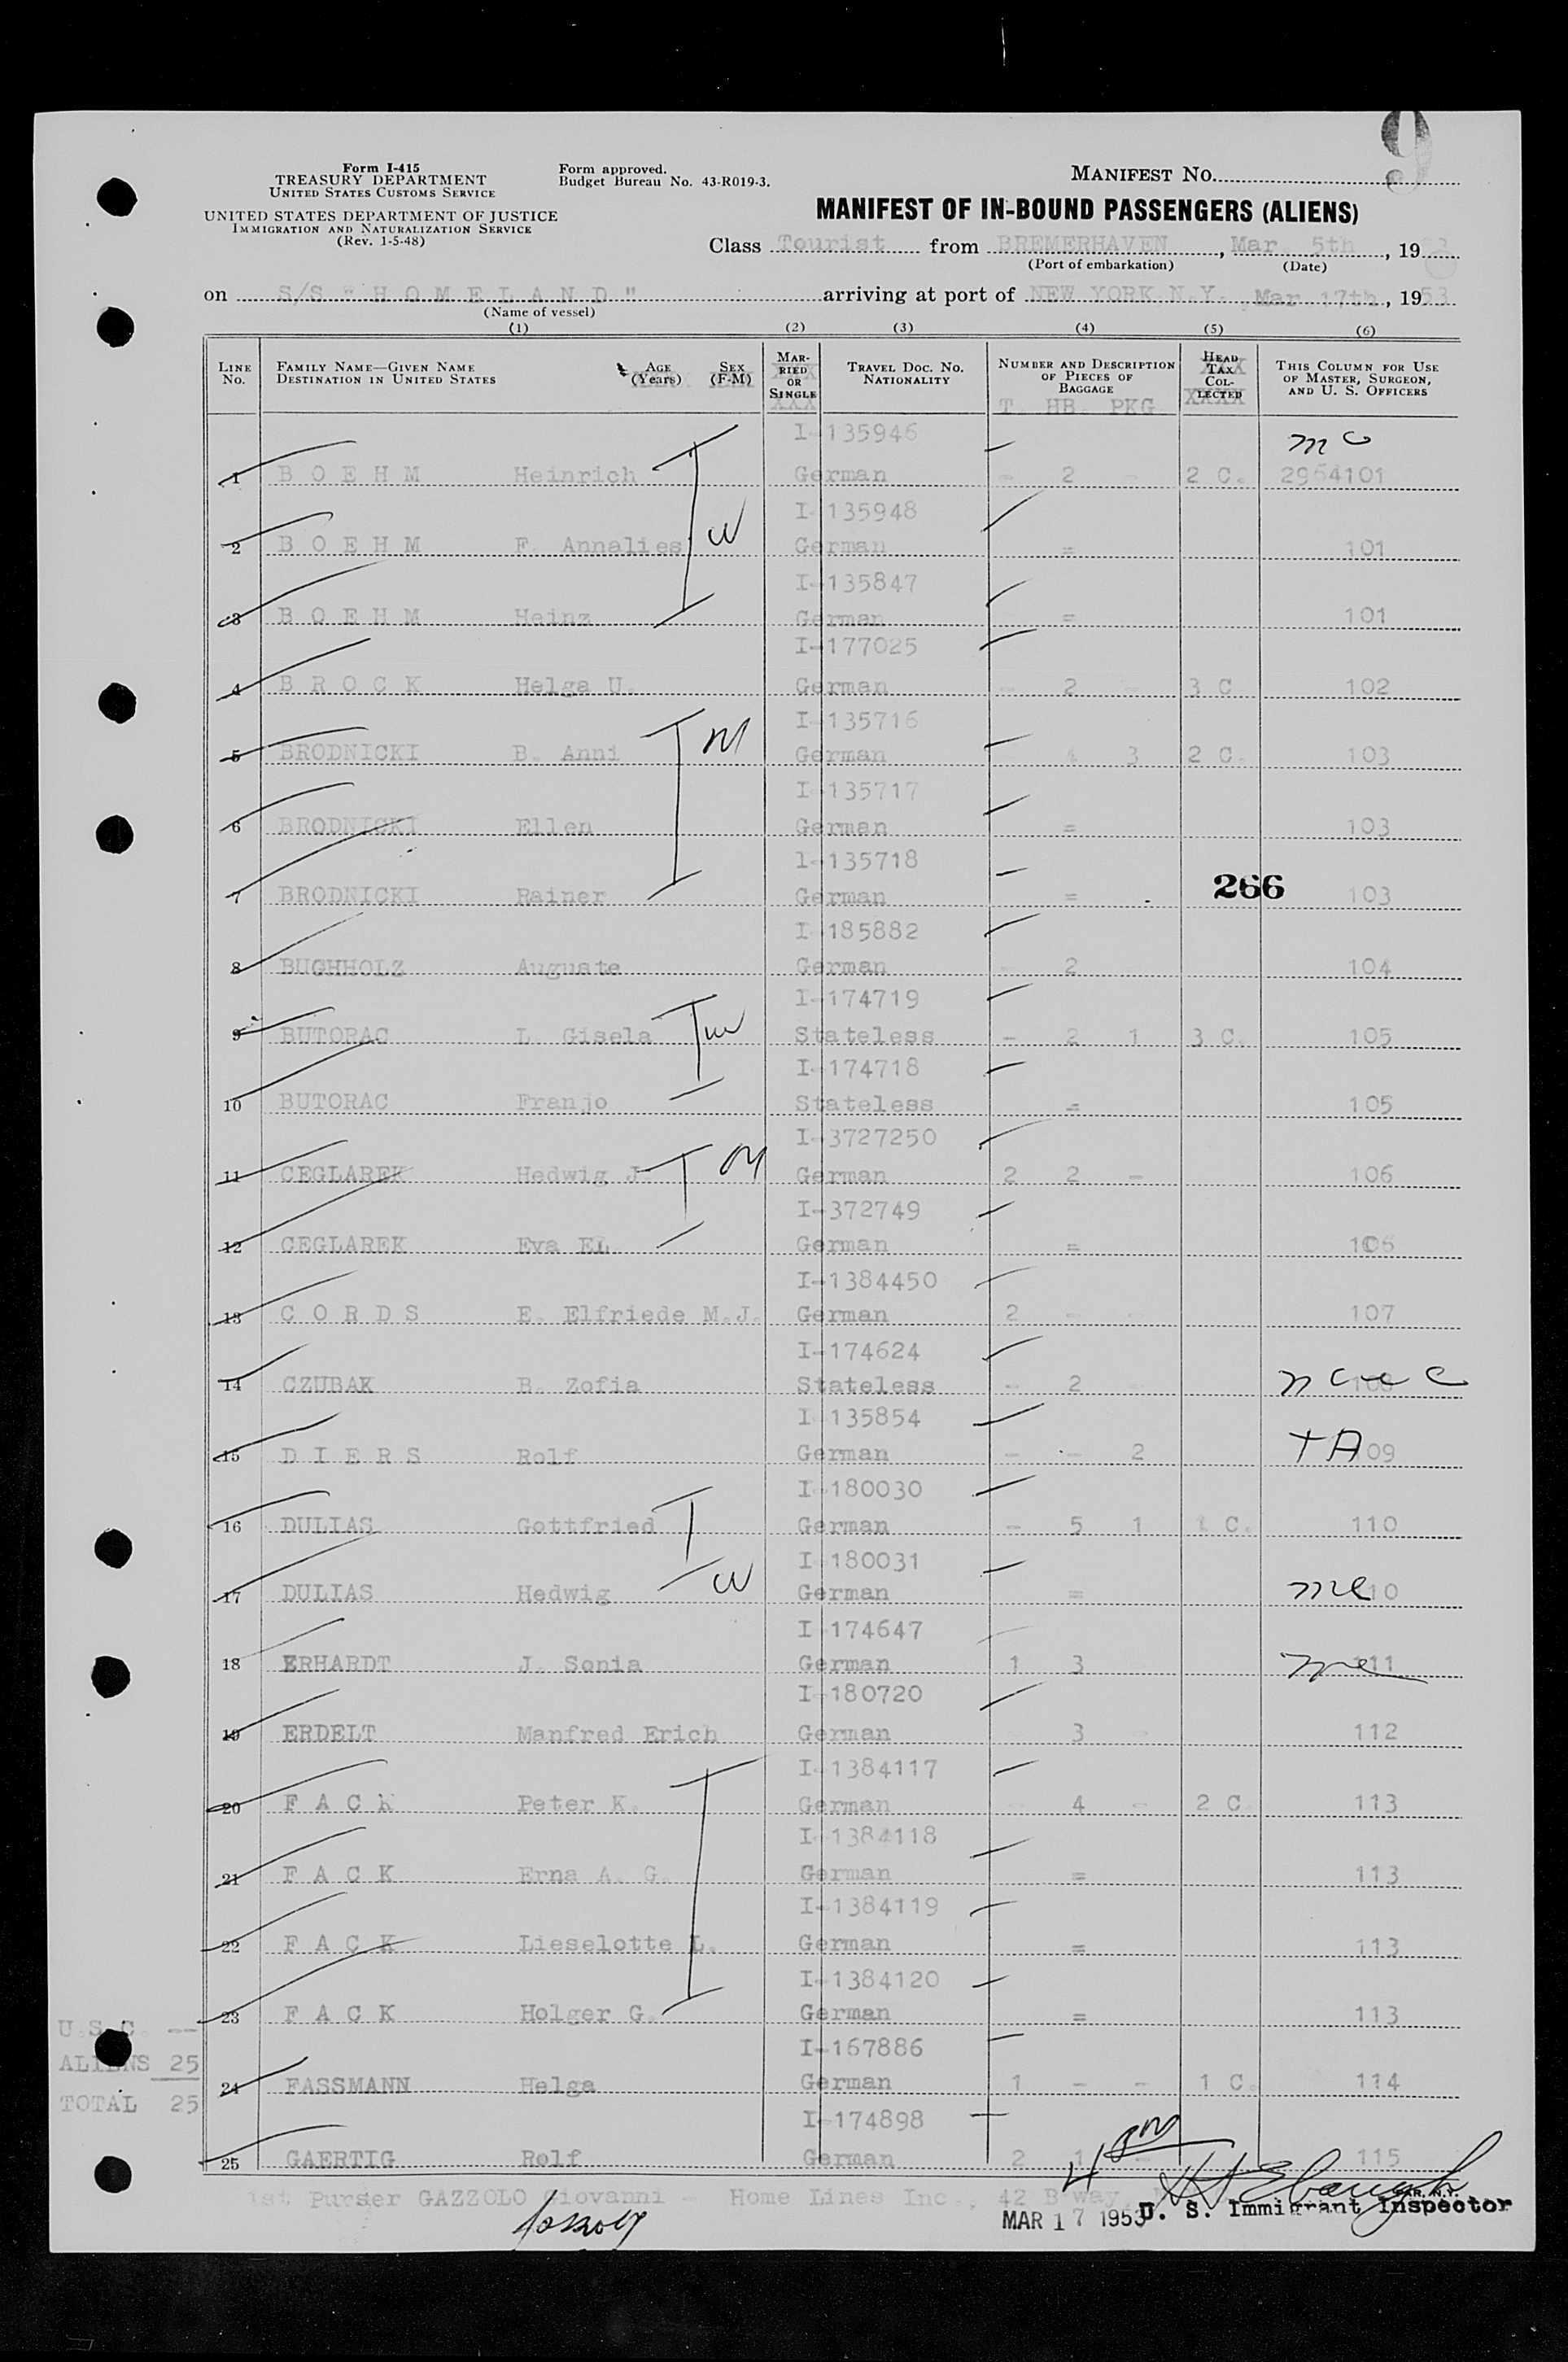 9
Form I-415
TREASURY DEPARTMENT
UNITED STATES CUSTOMS SERVICE
UNITED STATES DEPARTMENT OF JUSTICE
IMMIGRATION AND NATURALIZATION SERVICE
(Rev. 1-5-48)
Form approved.
Budget Bureau No. 43-R019-3.
MANIFEST NO.
MANIFEST OF IN-BOUND PASSENGERS (ALIENS)
Class Tourist from BREMERHAVEN, Mar 5th, 19
(Port of embarkation) (Date)
on S/S "HOMELAND" arriving at port of NEW YORK N.Y. Mar 17th, 1953
(Name of vessel)
(1) (2) (3) (4) (5) (6)
LINE NO. FAMILY NAME—GIVEN NAME DESTINATION IN UNITED STATES AGE (Years) SEX (F-M) MARRIED OR SINGLE TRAVEL DOC. NO. NATIONALITY NUMBER AND DESCRIPTION OF PIECES OF BAGGAGE HEAD TAX COLLECTED THIS COLUMN FOR USE OF MASTER, SURGEON, AND U. S. OFFICERS
T. HB. PKG
I-135946
1 BOEHM Heinrich German - 2 - 2 C. 2954101
I-135948
2 BOEHM F. Annalies W German = 101
I-135847
3 BOEHM Heinz German = 101
I-177025
4 BROCK Helga U. German - 2 - 3 C 102
I-135716
5 BRODNICKI B. Anni M German 4 3 2 C. 103
I-135717
6 BRODNICKI Ellen German = 103
I-135718
7 BRODNICKI Rainer German = 266 103
I-185882
8 BUCHHOLZ Auguste German - 2 104
I-174719
9 BUTORAC L. Gisela W Stateless - 2 1 3 C. 105
I-174718
10 BUTORAC Franjo Stateless = 105
I-3727250
11 CEGLAREK Hedwig J. M German 2 2 - 106
I-372749
12 CEGLAREK Eva El German = 106
I-1384450
13 CORDS E. Elfriede M.J. German 2 - 107
I-174624
14 CZUBAK B. Zofia Stateless - 2 108
I-135854
15 DIERS Rolf German - - 2 TA 109
I-180030
16 DULIAS Gottfried German - 5 1 1 C. 110
I-180031
17 DULIAS Hedwig W German = 110
I-174647
18 ERHARDT J. Sonia German 1 3 111
I-180720
19 ERDELT Manfred Erich German 3 - 112
I-1384117
20 FACK Peter K. German - 4 - 2 C 113
I-1384118
21 FACK Erna A. G. German = 113
I-1384119
22 FACK Lieselotte L. German = 113
I-1384120
23 FACK Holger G. German = 113
I-167886
24 FASSMANN Helga German 1 - - 1 C. 114
I-174898
25 GAERTIG Rolf German 2 1 - 115
U.S.C. --
ALIENS 25
TOTAL 25
1st Purser GAZZOLO Giovanni - Home Lines Inc., 42 B'way
MAR 17 1953 U. S. Immigrant Inspector